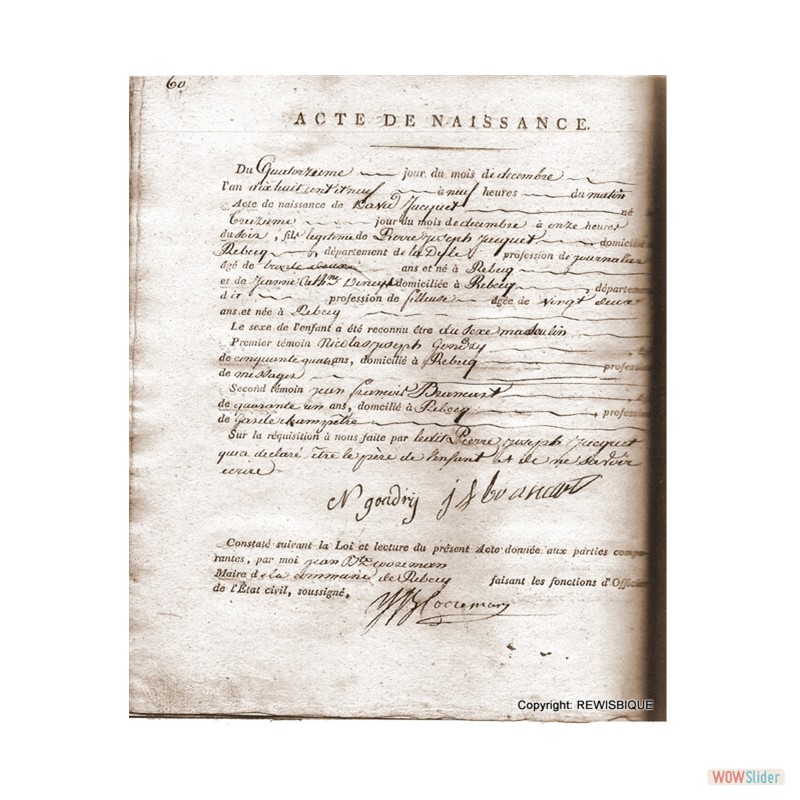 60
ACTE DE NAISSANCE.
Du Quatorzieme jour du mois de decembre
l'an dix huit cent et neuf à neuf heures du matin
Acte de naissance de David Jacquet né
treizieme jour du mois de decembre à onze heures
du soir, fils legitime de Pierre joseph jacquet domicilié
Rebecq, département de la Dyle, profession de journalier
âgé de trente ans et né à Rebecq
et de Jeanne Cath.ne domiciliée à Rebecq, départeme
d profession de fileuse âgée de vingt deux
ans et née à Rebecq
Le sexe de l'enfant a été reconnu être du sexe masculin
Premier témoin Nicolas joseph Gondry
de cinquante quatre ans, domicilié à Rebecq profess
de messager
Second témoin jean françois
de quarante un ans, domicilié à Rebecq, profession
de garde champêtre
Sur la réquisition à nous faite par ledit Pierre joseph jacquet
qui a declaré être le père de l'enfant et de ne savoir
ecrire
N gondry
Constaté suivant la Loi et lecture du présent Acte donnée aux parties compa-
rantes, par moi jean
Maire de la commune de Rebecq faisant les fonctions d'Offici
de l'État civil, soussigné.
Copyright: REWISBIQUE
WOWSlider